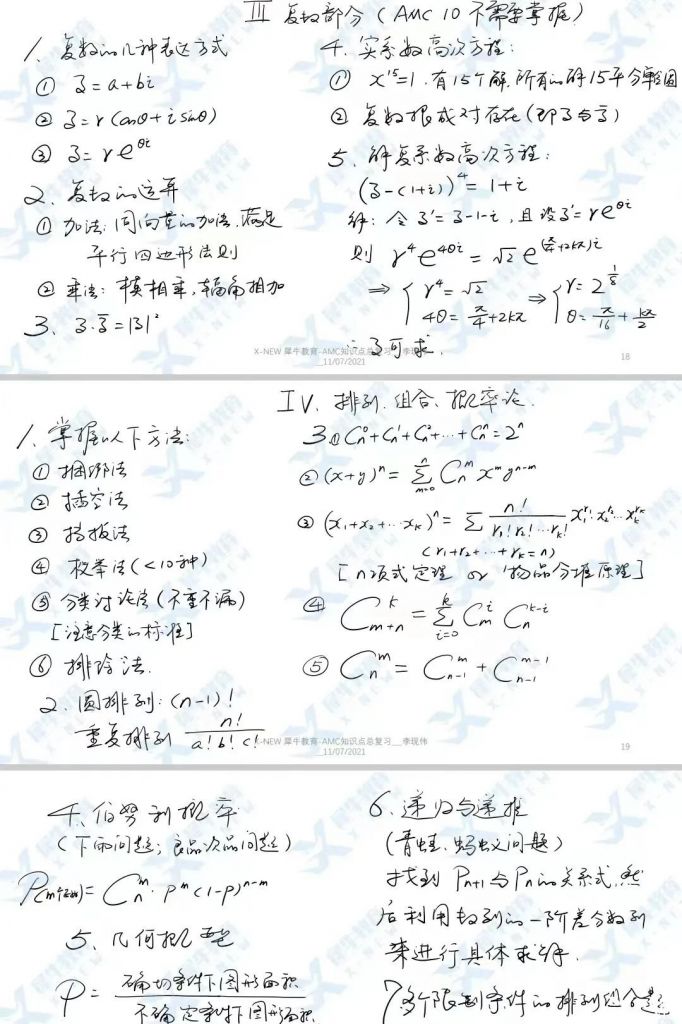 III 复数部分（AMC 10 不需要掌握）
1. 复数的几种表达方式
① z = a+bi
② z = r (cosθ + i sinθ)
③ z = re^{θi}
2. 复数的运算
① 加法：同向量的加法，满足
平行四边形法则
② 乘法：模相乘，辐角相加
3. z·z̄ = |z|²
4. 实系数高次方程：
① x^{15}=1，有15个解，所有的解15平分单位圆
② 复数根成对存在（即z与z̄）
5. 解复系数高次方程：
(z-(1+i))^4 = 1+i
解：令 z' = z-1-i，且设z' = re^{θi}
则 r^4 e^{4θi} = √2 e^{(π/4+2kπ)i}
⇒ { r^4 = √2 ⇒ { r = 2^{1/8}
4θ = π/4 + 2kπ θ = π/16 + kπ/2
∴ z可求.
X-NEW 犀牛教育-AMC知识点总复习__李现伟
__11/07/2021
18
IV. 排列、组合、概率论.
1. 掌握以下方法：
① 捆绑法
② 插空法
③ 挡板法
④ 枚举法（<10种）
⑤ 分类讨论法（不重不漏）
[注意分类的标准]
⑥ 排除法.
2. 圆排列：(n-1)!
重复排列 n!/(a! b! c!)
3. ① C_n^0 + C_n^1 + C_n^2 + ... + C_n^n = 2^n
② (x+y)^n = Σ_{m=0}^{n} C_n^m x^m y^{n-m}
③ (x_1+x_2+...x_k)^n = Σ n!/(r_1! r_2! ... r_k!) x_1^{r_1} x_2^{r_2} ... x_k^{r_k}
(r_1+r_2+...+r_k = n)
[n项式定理 or 物品分堆原理]
④ C_{m+n}^k = Σ_{i=0}^{k} C_m^i C_n^{k-i}
⑤ C_n^m = C_{n-1}^m + C_{n-1}^{m-1}
X-NEW 犀牛教育-AMC知识点总复习__李现伟
__11/07/2021
19
4. 伯努利概率
（下雨问题；良品次品问题）
= C_n^m · p^m (1-p)^{n-m}
5. 几何概型
P = 确切条件下图形面积
不确定条件下图形面积
6. 递归与递推
（青蛙、蚂蚁问题）
找到 P_{n+1} 与 P_n 的关系式，然
后利用数列的一阶差分数列
来进行具体求解.
7. 多个限制条件的排列组合题